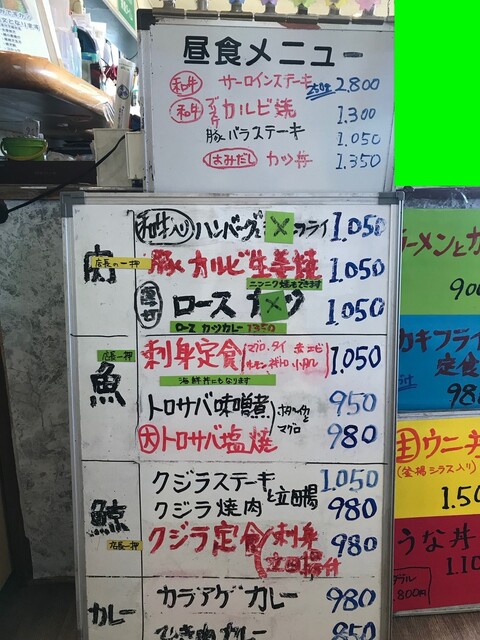 昼食メニュー
和牛 サーロインステーキ 250g 2.800
和牛 カルビ焼 1.300
豚バラステーキ 1.050
はみだし カツ丼 1.350
肉
和牛入り ハンバーグと メ フライ 1.050
店長の一押
豚カルビ生姜焼 1.050
ニンニク焼もできます
厚切 ロースカツ 1.050
ロースカツカレー 1350
魚
店長一押
刺身定食 1.050
マグロ.タイ 赤エビ
サーモン
海鮮丼にもなります
トロサバ味噌煮 950
大トロサバ塩焼 980
マグロ
鯨
クジラステーキ 1.050
クジラ焼肉 980
と立田揚
店長一押
クジラ定食 刺身 980
立田揚付
カレー
カラアゲカレー 980
ひき肉カレー 850
ラーメンとカ
900
カキフライ
定食
980
生ウニ丼
(釜揚シラス入り)
1.50
うな丼
1.10
800円